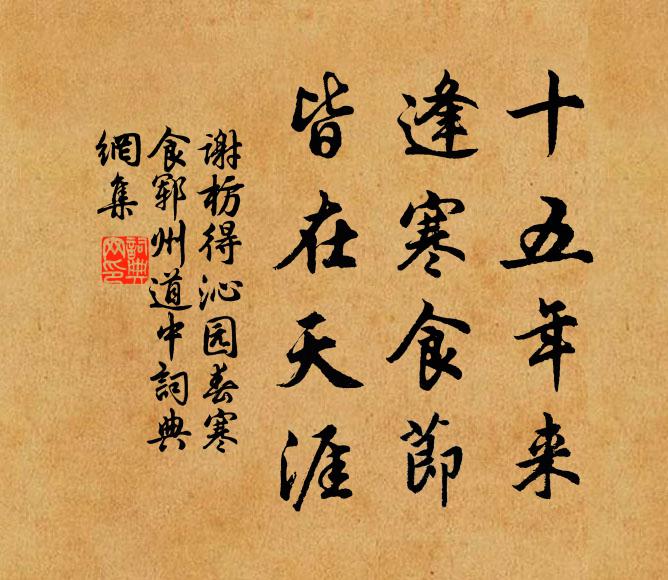 十五年来
逢寒食節
皆在天涯
谢枋得沁园春寒
食郓州道中詞典
網集
詞典
网印